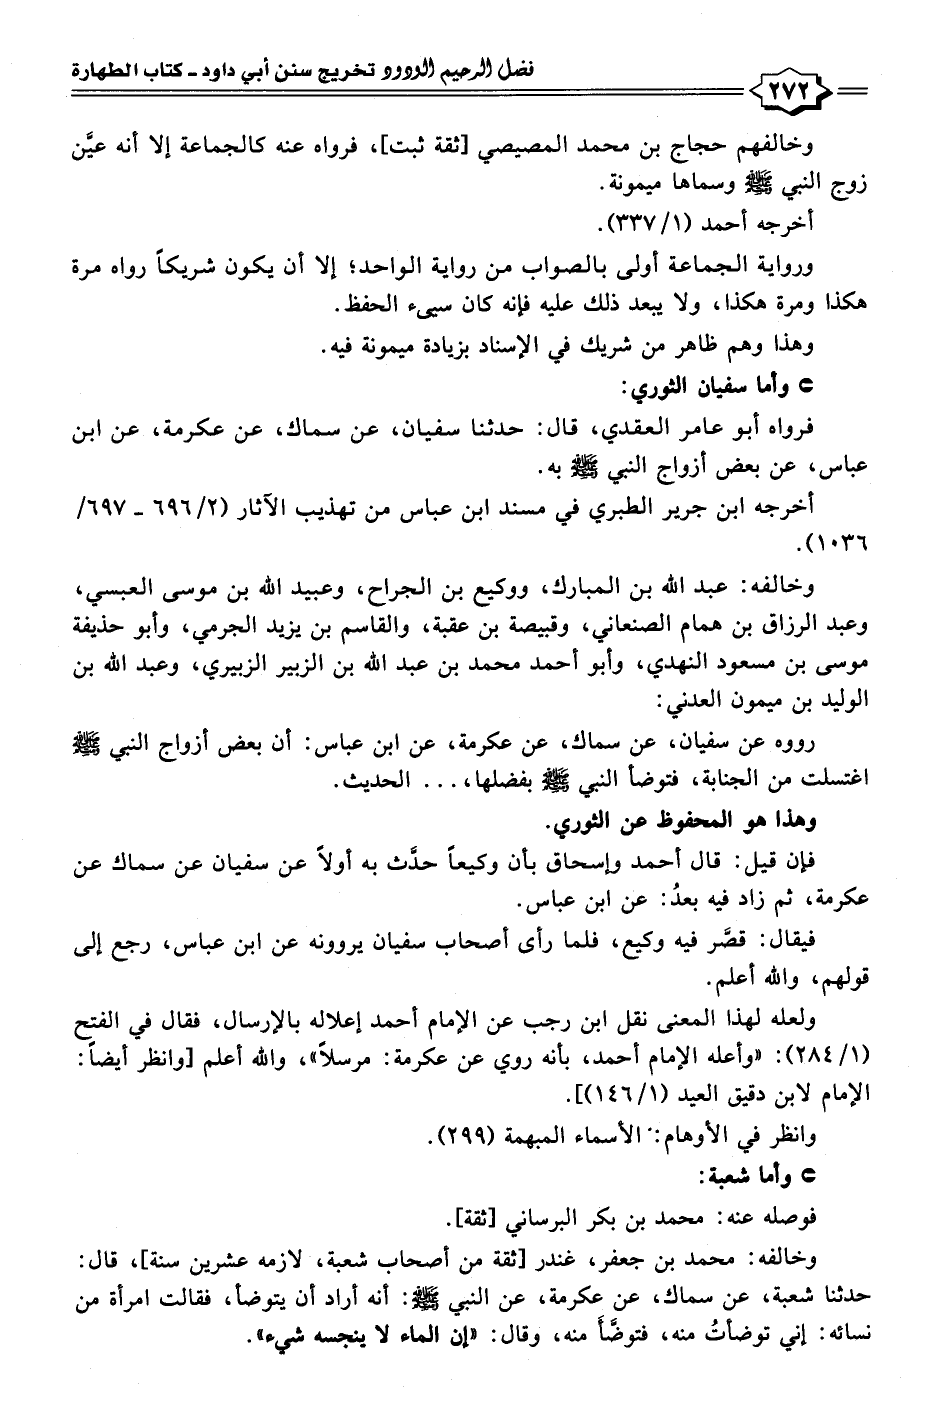 فضل الرحيم الودود تخريج سنن أبي داود - كتاب الطهارة
٢٧٢
وخالفهم حجاج بن محمد المصيصي [ثقة ثبت]، فرواه عنه كالجماعة إلا أنه عيَّن
زوج النبي ﷺ وسماها ميمونة.
أخرجه أحمد (١/ ٣٣٧).
ورواية الجماعة أولى بالصواب من رواية الواحد؛ إلا أن يكون شريكاً رواه مرة
هكذا ومرة هكذا، ولا يبعد ذلك عليه فإنه كان سيىء الحفظ.
وهذا وهم ظاهر من شريك في الإسناد بزيادة ميمونة فيه.
⊂ وأما سفيان الثوري:
فرواه أبو عامر العقدي، قال: حدثنا سفيان، عن سماك، عن عكرمة، عن ابن
عباس، عن بعض أزواج النبي ﷺ به.
أخرجه ابن جرير الطبري في مسند ابن عباس من تهذيب الآثار (٢/ ٦٩٦ - ٦٩٧/
١٠٣٦).
وخالفه: عبد الله بن المبارك، ووكيع بن الجراح، وعبيد الله بن موسى العبسي،
وعبد الرزاق بن همام الصنعاني، وقبيصة بن عقبة، والقاسم بن يزيد الجرمي، وأبو حذيفة
موسى بن مسعود النهدي، وأبو أحمد محمد بن عبد الله بن الزبير الزبيري، وعبد الله بن
الوليد بن ميمون العدني:
رووه عن سفيان، عن سماك، عن عكرمة، عن ابن عباس: أن بعض أزواج النبي ﷺ
اغتسلت من الجنابة، فتوضأ النبي ﷺ بفضلها،... الحديث.
وهذا هو المحفوظ عن الثوري.
فإن قيل: قال أحمد وإسحاق بأن وكيعاً حدَّث به أولاً عن سفيان عن سماك عن
عكرمة، ثم زاد فيه بعدُ: عن ابن عباس.
فيقال: قصَّر فيه وكيع، فلما رأى أصحاب سفيان يروونه عن ابن عباس، رجع إلى
قولهم، والله أعلم.
ولعله لهذا المعنى نقل ابن رجب عن الإمام أحمد إعلاله بالإرسال، فقال في الفتح
(١/ ٢٨٤): «وأعله الإمام أحمد، بأنه روي عن عكرمة: مرسلاً»، والله أعلم [وانظر أيضاً:
الإمام لابن دقيق العيد (١/ ١٤٦)].
وانظر في الأوهام: الأسماء المبهمة (٢٩٩).
⊂ وأما شعبة:
فوصله عنه: محمد بن بكر البرساني [ثقة].
وخالفه: محمد بن جعفر، غندر [ثقة من أصحاب شعبة، لازمه عشرين سنة]، قال:
حدثنا شعبة، عن سماك، عن عكرمة، عن النبي ﷺ: أنه أراد أن يتوضأ، فقالت امرأة من
نسائه: إني توضأتُ منه، فتوضَّأَ منه، وقال: «إن الماء لا ينجسه شيء».